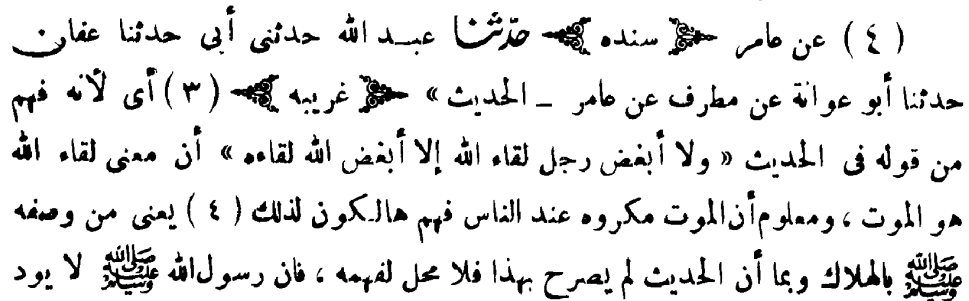 ( ٤ ) عن عامر ﴿ سنده ﴾ حدثنا عبد الله حدثنى أبى حدثنا عفان
حدثنا أبو عوانة عن مطرف عن عامر ـ الحديث » ﴿ غريبه ﴾ ( ٣ ) أى لأنه فهم
من قوله فى الحديث « ولا أبغض رجل لقاء الله إلا أبغض الله لقاءه » أن معنى لقاء الله
هو الموت ، ومعلوم أن الموت مكروه عند الناس فهم هالكون لذلك ( ٤ ) يعنى من وصفه
ﷺ بالهلاك وبما أن الحديث لم يصرح بهذا فلا محل لفهمه ، فان رسول الله ﷺ لا يود